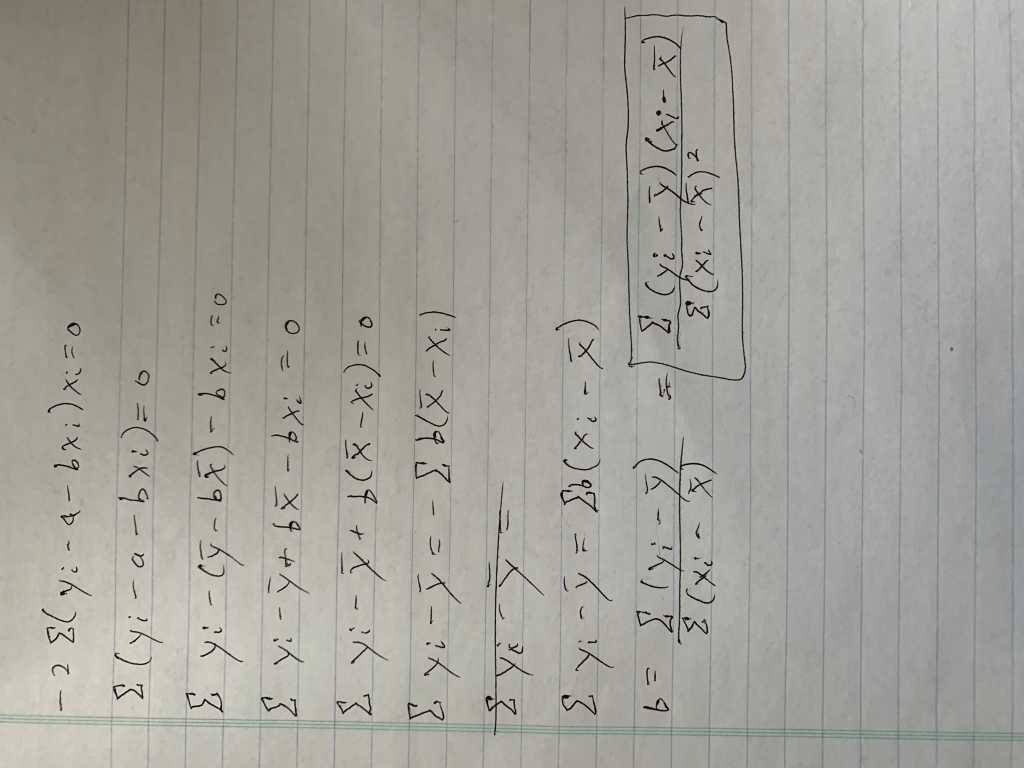 -2 Σ(yi - a - bxi)xi=0
Σ(yi - a - bxi)=0
Σ yi - (ȳ - bx̄) - bxi=0
Σ yi - ȳ + bx̄ - bxi = 0
Σ yi - ȳ + b(x̄ - xi)=0
Σ yi - ȳ = - Σ b(x̄ - xi)
Σ yi - ȳ =
Σ yi - ȳ = Σb(xi - x̄)
b = Σ(yi - ȳ) / Σ(xi - x̄) = Σ(yi - ȳ)(xi - x̄) / Σ(xi - x̄)²